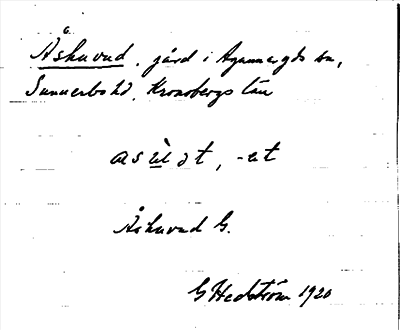 Åshuvud, gård i Agunnaryds sn,
Sunnerbo hd, Kronobergs län
Åshuvud G.
G Hedström 1920